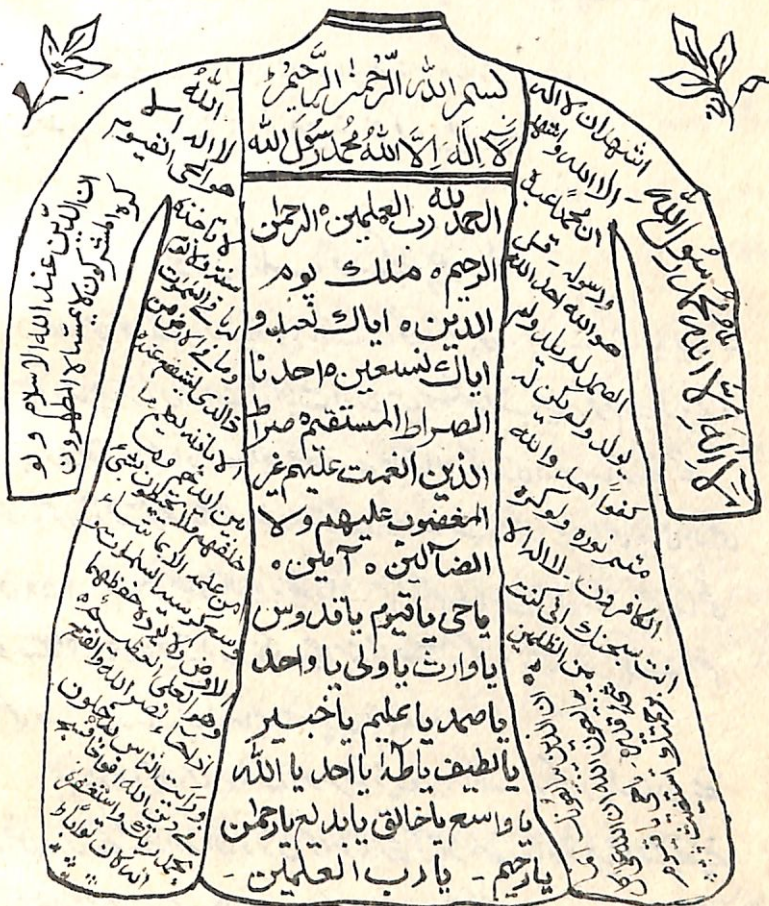 بسم الله الرحمن الرحيم
لا اله الا الله محمد رسول الله
الحمد لله رب العلمين ه الرحمن
الرحيم ه ملك يوم
الدين ه اياك نعبد و
اياك نستعين ه احد نا
الصراط المستقيم ه صراط
الذين انعمت عليهم غير
المغضوب عليهم ولا
الضالين ه آمين ه
ياحي ياقيوم ياقدوس
ياوارث ياولي ياواحد
ياصمد ياعليم ياخبير
يالطيف ياطه يااحد يا الله
ياواسع ياخالق يابديع يارحمن
يارحيم - يارب العلمين -
اشهد ان لا اله
الا الله واشهد
ان محمدا عبده
ورسوله - قل
هو الله احد الله
الصمد لم يلد ولم
يولد ولم يكن له
كفوا احد والله
متم نوره ولوكره
الكافرون - لا اله الا
انت سبحنك اني كنت
من الظلمين
ان الذين يبايعونك انما
يبايعون الله يد الله فوق
ياحي ياقيوم
برحمتك استغيث
لا اله الا الله محمد رسول الله
الله
لا اله الا
هو الحي القيوم
لا تاخذه
سنة ولا نوم
له ما في السموت
وما في الارض من
ذا الذي يشفع عنده
الا باذنه يعلم ما
بين ايديهم وما
خلفهم ولا يحيطون بشئ
من علمه الا بما شاء
وسع كرسيه السموت و
الارض ولا يؤده حفظهما
وهو العلي العظيم ه
اذا جاء نصر الله والفتح
ورايت الناس يدخلون
في دين الله افواجا فسبح
بحمد ربك واستغفره
انه كان توابا
ان الدين عند الله الاسلام ولو
كره المشركون لا يمسه الا المطهرون